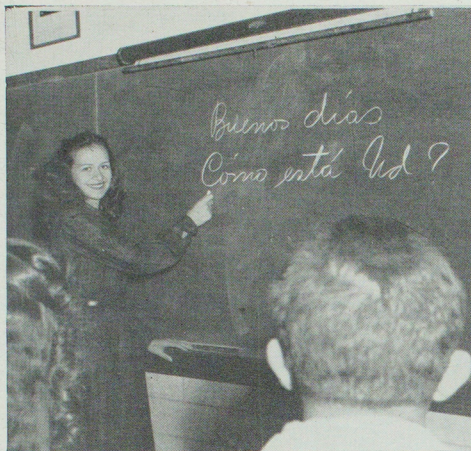 Buenos días
Cómo está Ud?